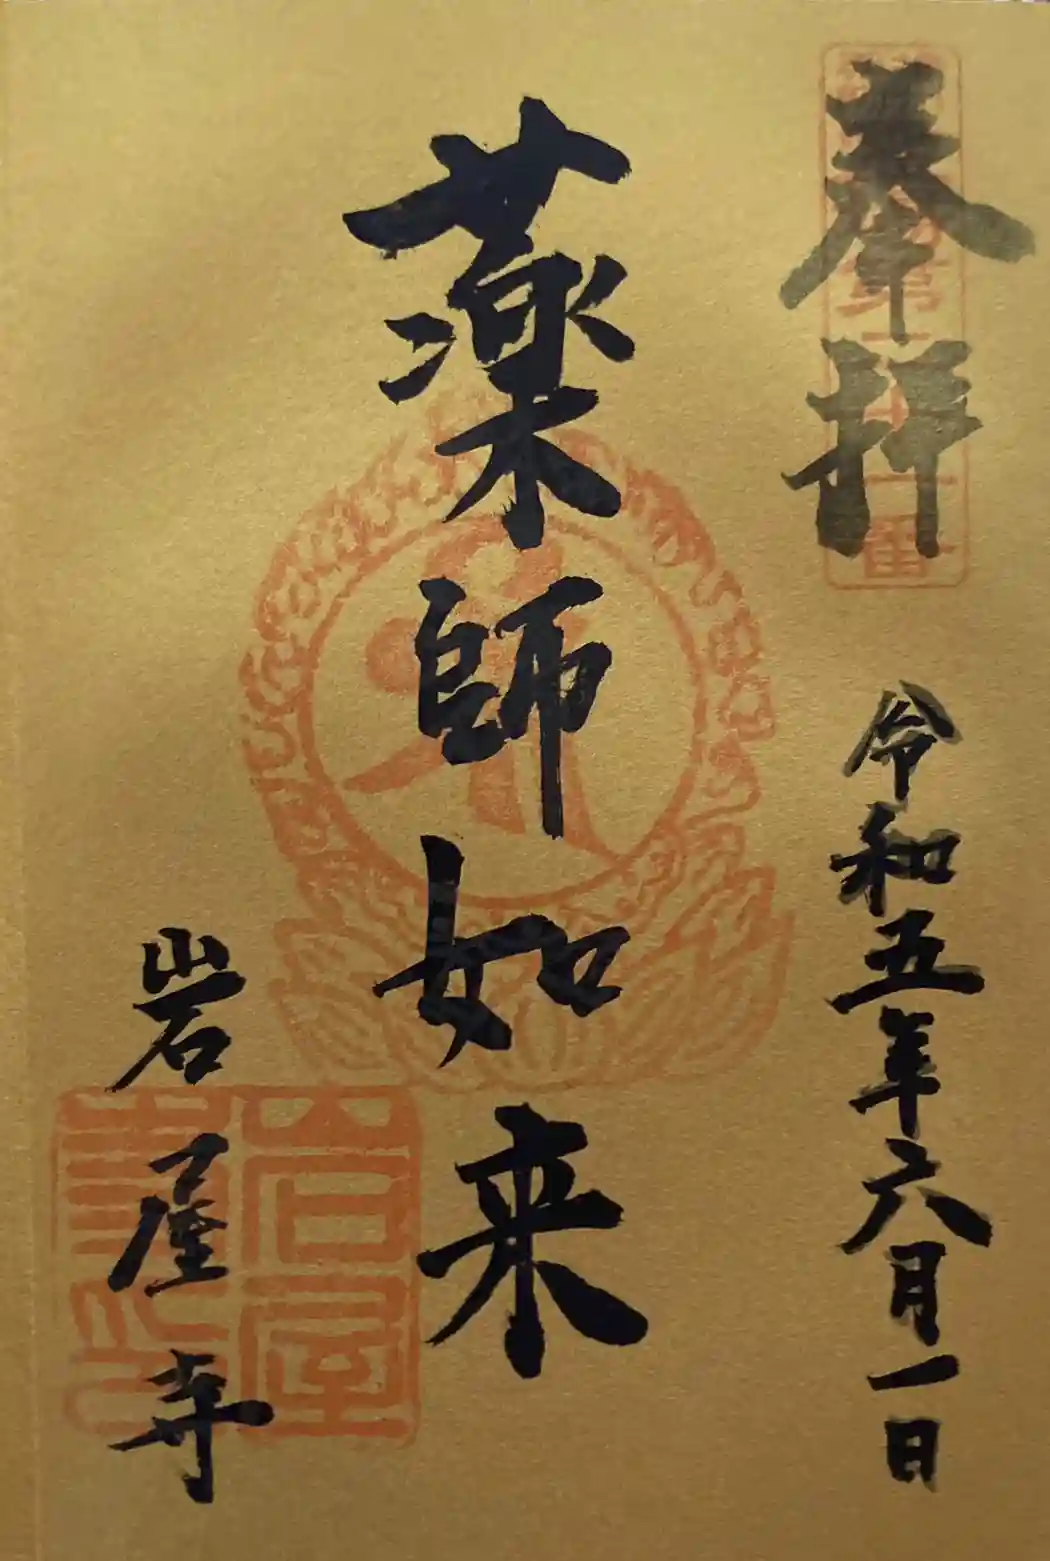 奉拝
令和五年六月一日
薬師如来
岩屋寺
岩屋
寺印